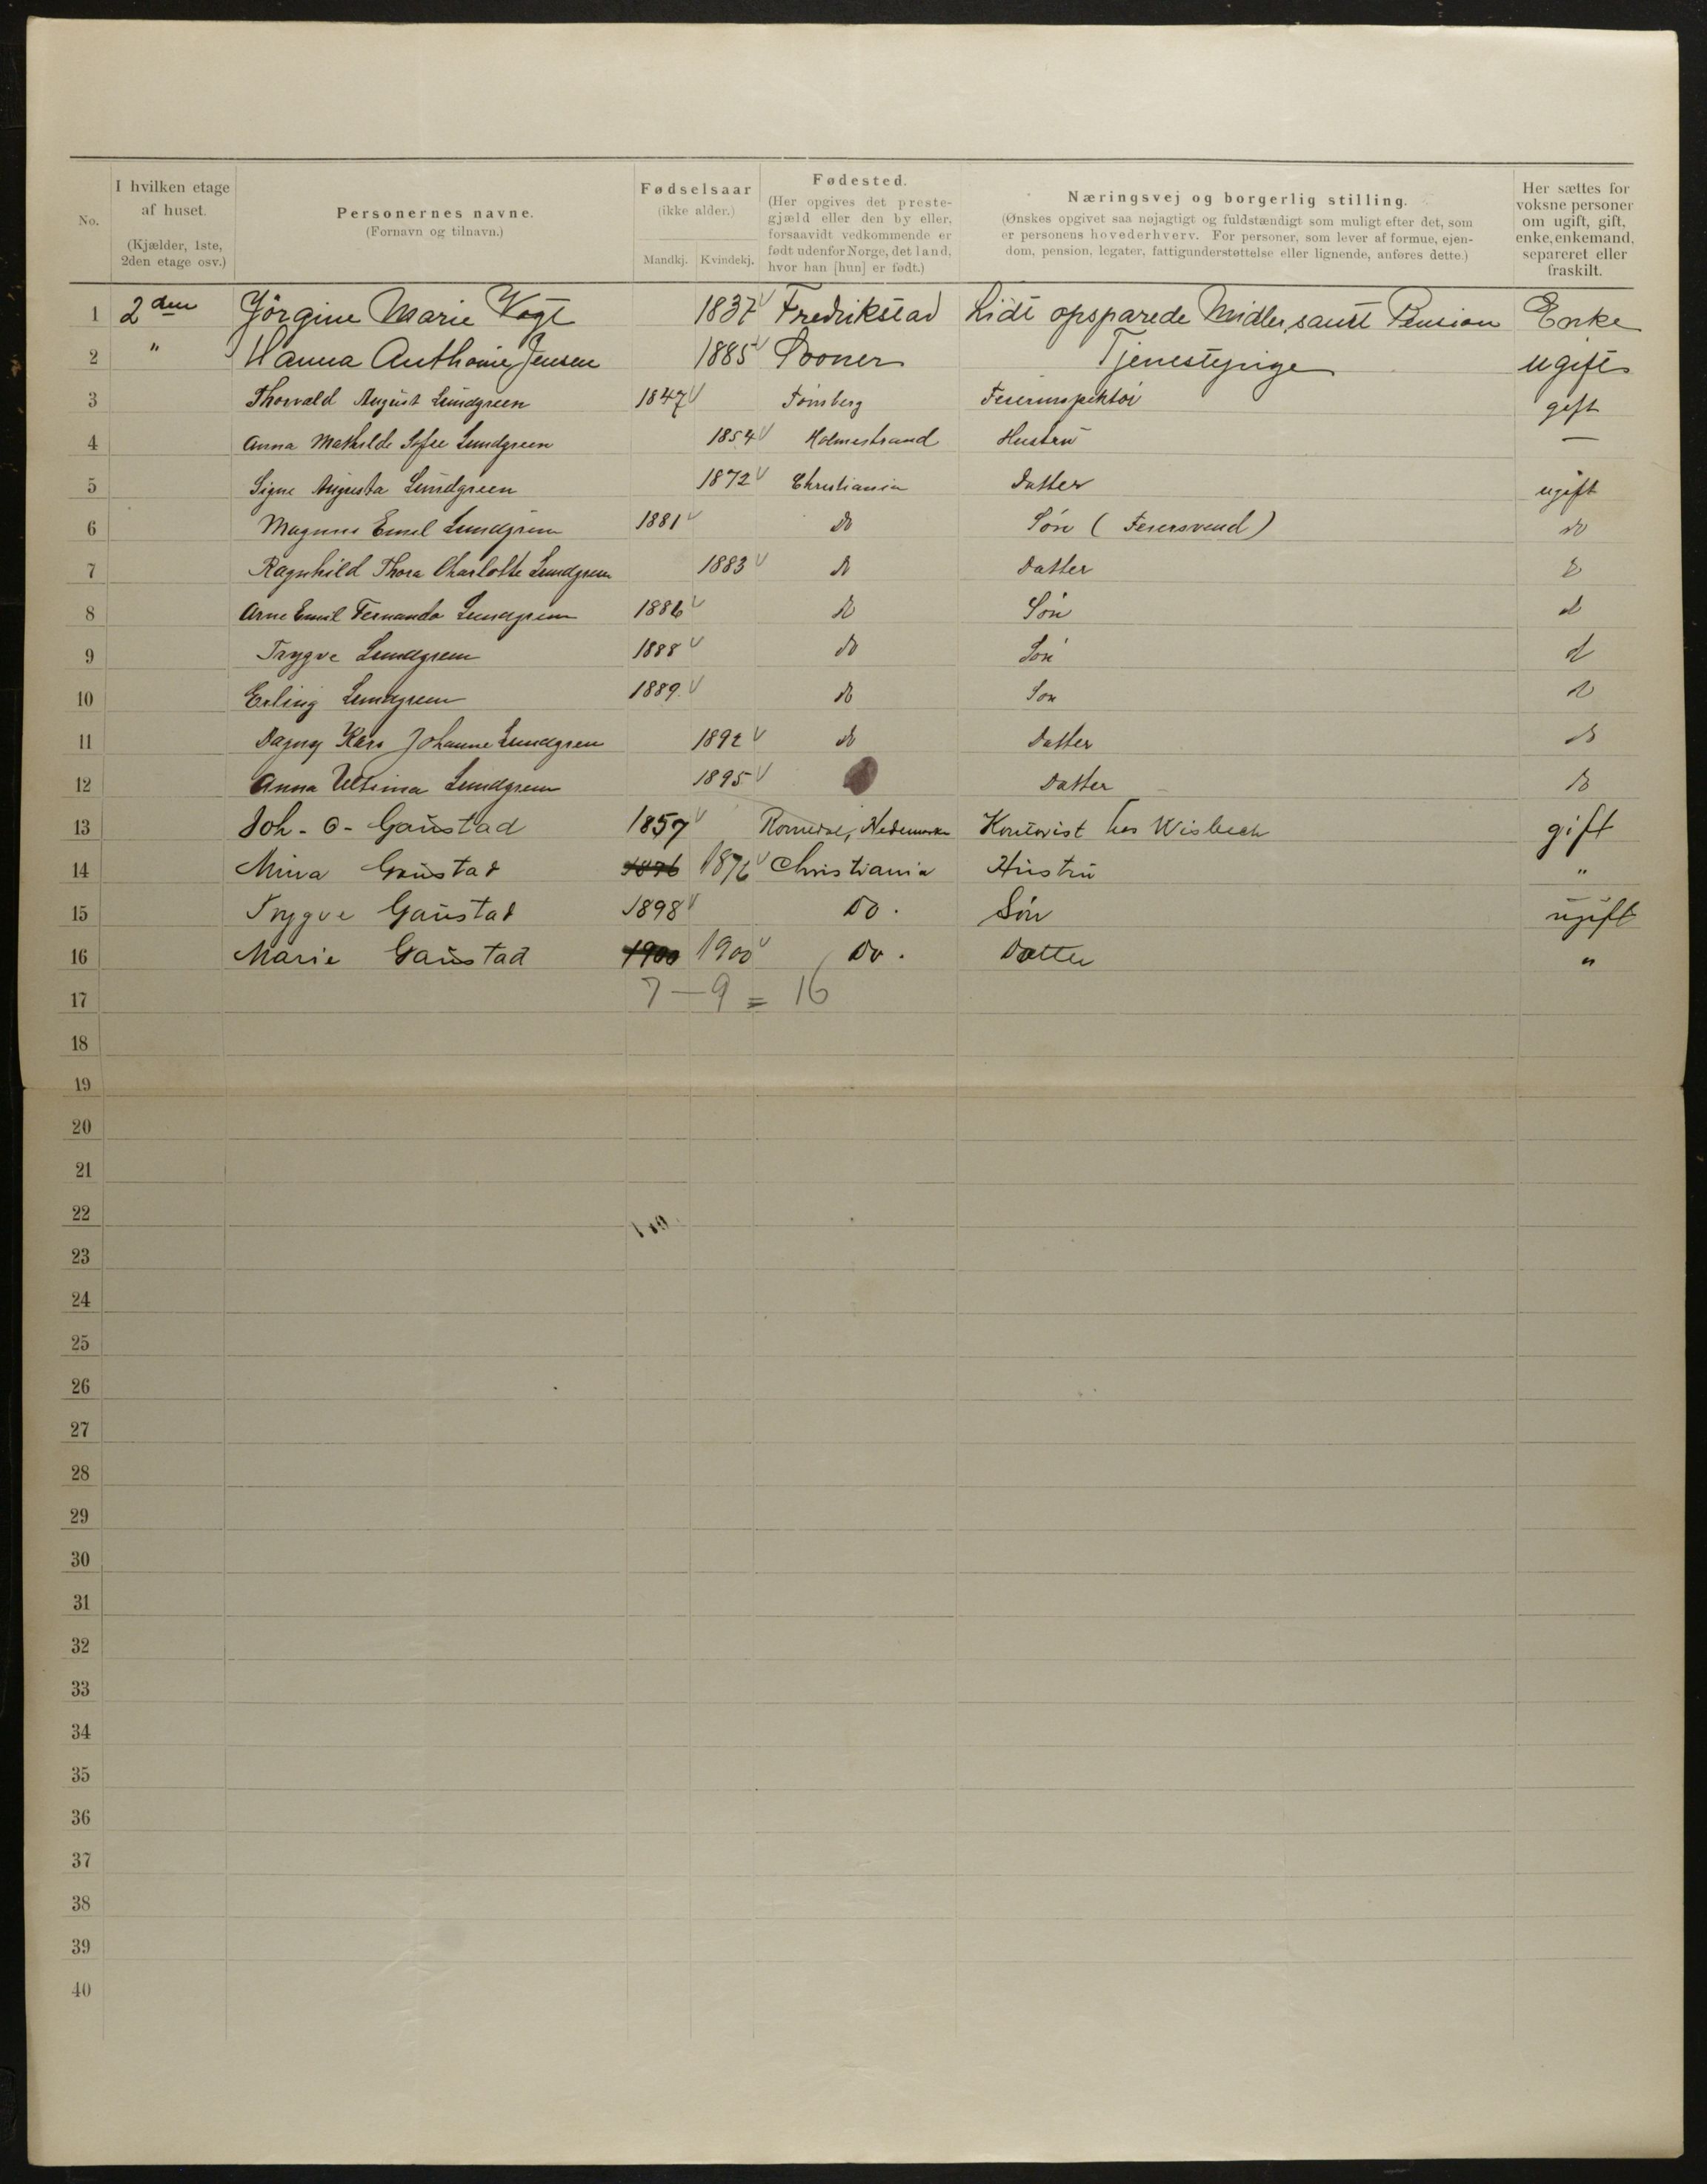 No.
I hvilken etage
af huset.
(Kjælder, 1ste,
2den etage osv.)
Personernes navne.
(Fornavn og tilnavn.)
Fødselsaar
(ikke alder.)
Mandkj. Kvindekj.
Fødested.
(Her opgives det preste-
gjæld eller den by eller,
forsaavidt vedkommende er
født udenfor Norge, det land,
hvor han [hun] er født.)
Næringsvej og borgerlig stilling.
(Ønskes opgivet saa nøjagtigt og fuldstændigt som muligt efter det, som
er personens hovederhverv. For personer, som lever af formue, ejen-
dom, pension, legater, fattigunderstøttelse eller lignende, anføres dette.)
Her sættes for
voksne personer
om ugift, gift,
enke, enkemand,
separeret eller
fraskilt.
1 2den Jörgine Marie Vogt 1837 Fredrikstad Lidt opsparede Midler, samt Pension Enke
2 " Hanna Anthonie Jensen 1885 Tjenestepige ugift
3 Thorvald August Lundgreen 1847 Tønsberg Feierinspektør gift
4 Anna Mathilde Sofie Lundgreen 1854 Holmestrand Hustru —
5 Signe Augusta Lundgreen 1872 Christiania Datter ugift
6 Magnus Emil Lundgreen 1881 do Søn (Feiersvend) do
7 Ragnhild Thora Charlotte Lundgreen 1883 do Datter do
8 Arne Emil Fernando Lundgreen 1886 do Søn do
9 Trygve Lundgreen 1888 do Søn do
10 Erling Lundgreen 1889. do Søn do
11 Dagny Johanne Lundgreen 1892 do Datter do
12 Anna Ultima Lundgreen 1895 Datter do
13 Joh. O. Gaustad 1857 Romedal, Hedemarken Kontorist hos Wisbech gift
14 Mina Gaustad 1876 1876 Christiania Hustru "
15 Trygve Gaustad 1898 Do. Søn ugift
16 Marie Gaustad 1900 1900 Do. Datter "
17 7 — 9 = 16
18
19
20
21
22
23
24
25
26
27
28
29
30
31
32
33
34
35
36
37
38
39
40